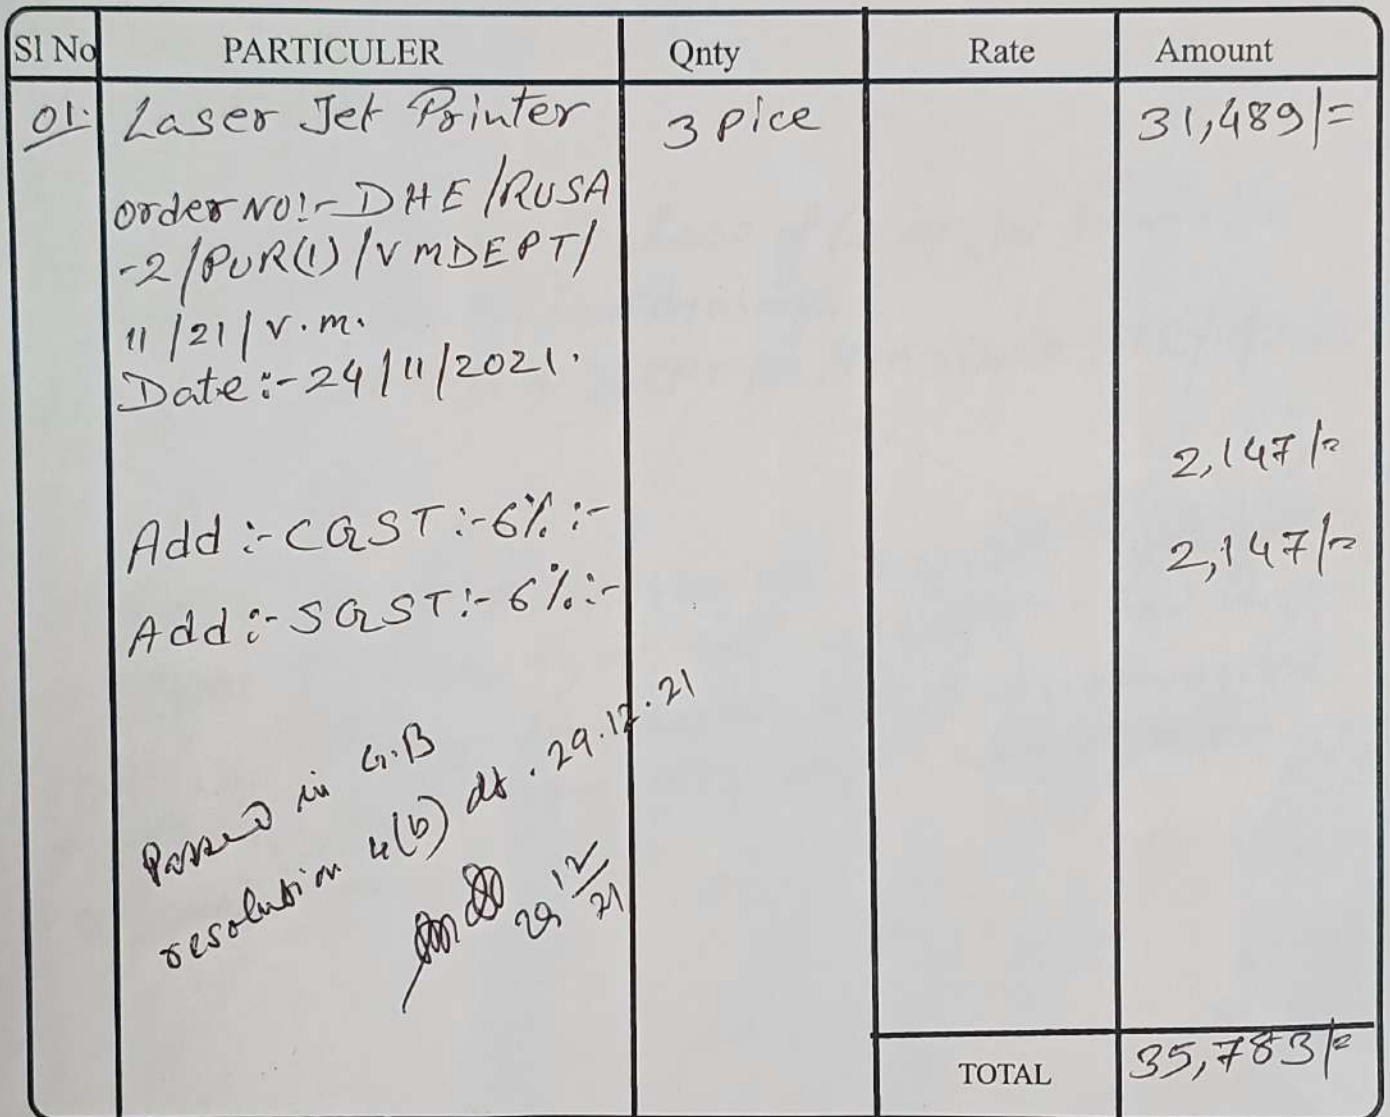 Sl No PARTICULER Qnty Rate Amount
01. Laser Jet Printer 3 Pice 31,489/=
Order NO:- DHE/RUSA
-2/PUR(1)/VMDEPT/
11/21/V.M.
Date:- 24/11/2021.
2,147/=
Add:- CGST:- 6%:- 2,147/=
Add:- SGST:- 6%:-
Passed in G.B
resolution 4(b) dt. 29.12.21
29/12/21
TOTAL 35,783/=